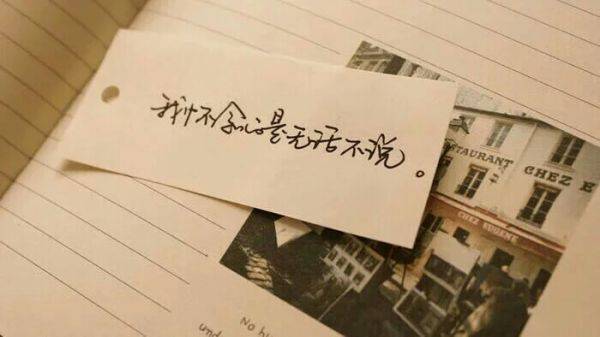 我怀念的是无话不说。
STAURANT CHEZ E
CHEZ EUGENE
No
und